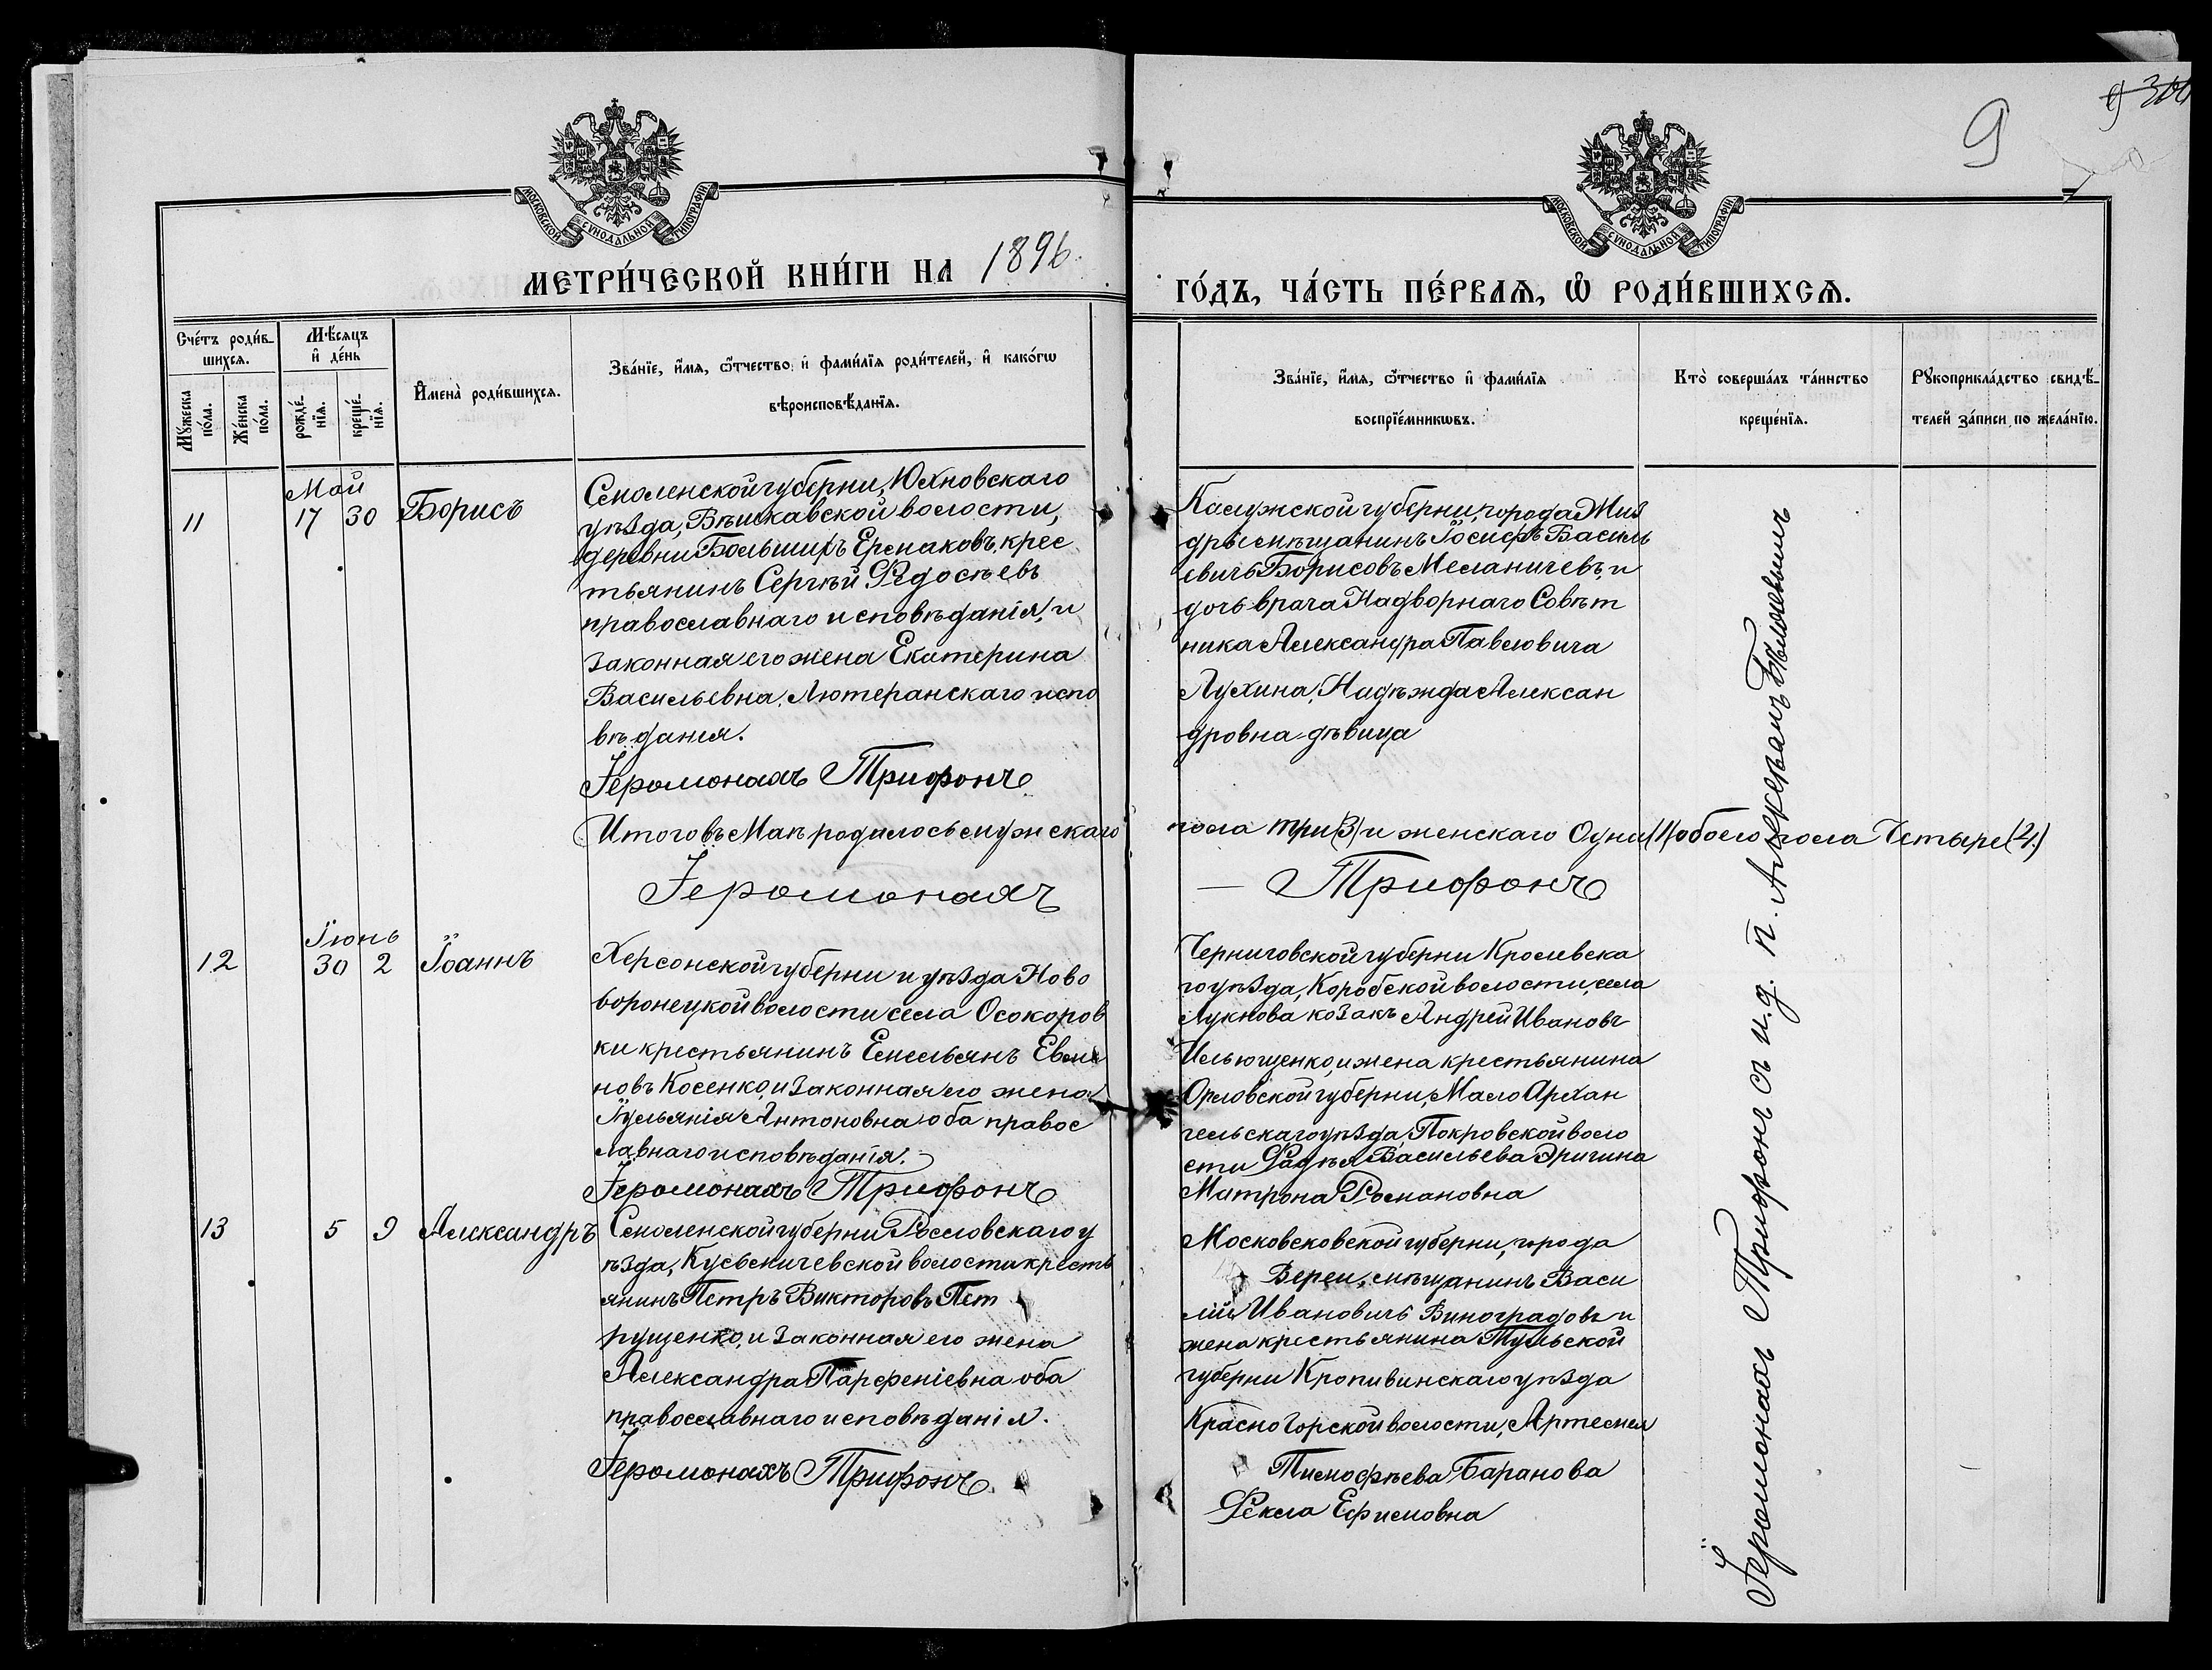 9
9 300
МОСКОВСКОЙ СУНОДАЛЬНОЙ ТИПОГРАФІИ
МОСКОВСКОЙ СУНОДАЛЬНОЙ ТИПОГРАФІИ
МЕТРИ́ЧЕСКОЙ КНИ́ГИ НА 1896
ГО́ДЪ, ЧА́СТЬ ПЕ́РВАѦ, Ѡ РОДИ́ВШИХСѦ.
Сче́тъ роди́в-
шихся.
Мꙋжеска по́ла.
Же́нска по́ла.
Мѣ́сяцъ
и҆ де́нь
рожде́-
нїя.
креще́-
нїя.
И҆мена̀ роди́вшихся.
Зва́нїе, и҆́мя, ѻ҆́тчество и҆ фами́лїя роди́телей, и҆ како́гѡ
вѣроисповѣ́данїя.
Зва́нїе, и҆́мя, ѻ҆́тчество и҆ фами́лїя
воспрїе́мникѡвъ.
Кто̀ соверша́лъ та́инство
креще́нїя.
Рꙋкоприкла́дство свидѣ́-
телей за́писи по жела́нїю.
Май
11 17 30 Борисъ
Смоленской губерни, Юхновскаго
уѣзда, Вѣшкавской волости,
деревни Большихъ Ермаковъ, крес
тьянинъ Сергѣй Ѳедосѣевъ
православнаго исповѣданія, и
законная его жена Екатерина
Васильевна, Лютеранскаго испо
вѣдания.
Іеромонахъ Трифонъ
Калужской губерни, города Жиз
дры мѣщанинъ Іосифъ Василь
евичъ Борисовъ Меланичевъ, и
дочь врача Надворнаго Совѣт
ника Александра Павловича
Лухина, Надѣжда Алексан
дровна дѣвица
Итого въ Маѣ родилось мужскаго
пола три (3) и женскаго Одна (1) обоего пола Четыре (4.)
Іеромонахъ
— Трифонъ
Іюнь
12 30 2 Іоаннъ
Херсонской губерни и уѣзда Ново
воронецкой волости села Осокоров
ки крестьянинъ Емельянъ
новъ Косенко, и законная его жена
Іульянія Антоновна оба правос
лавнаго исповѣданія.
Іеромонахъ Трифонъ
Черниговской губерни Кролевска
го уѣзда, Коробской волости, села
Лукнова козакъ Андрей Ивановъ
Ильющенко, и жена крестьянина
Орловской губерни, Мало Архан
гельскаго уѣзда, Покровской воло
сти Фадѣя Васильева Эригина
Матрона Романовна
13 5 9 Александръ
Смоленской губерни Рославскаго у
ѣзда, Кузьмичевской волости кресть
янинъ Петръ Викторовъ Пет
рущенко, и законная его жена
Александра Парѳеніевна оба
православнаго исповѣданія.
Іеромонахъ Трифонъ
Московсковской губерни, города
Вереи, мѣщанинъ Васи
лій Ивановичъ Виноградовъ и
жена крестьянина Тульской
губерни Кропивинскаго уѣзда
Красногорской волости, Артемья
Тимофѣева Баранова
Ѳекла Ефимовна
Іеромонахъ Трифонъ съ и. д. п. Алексѣемъ